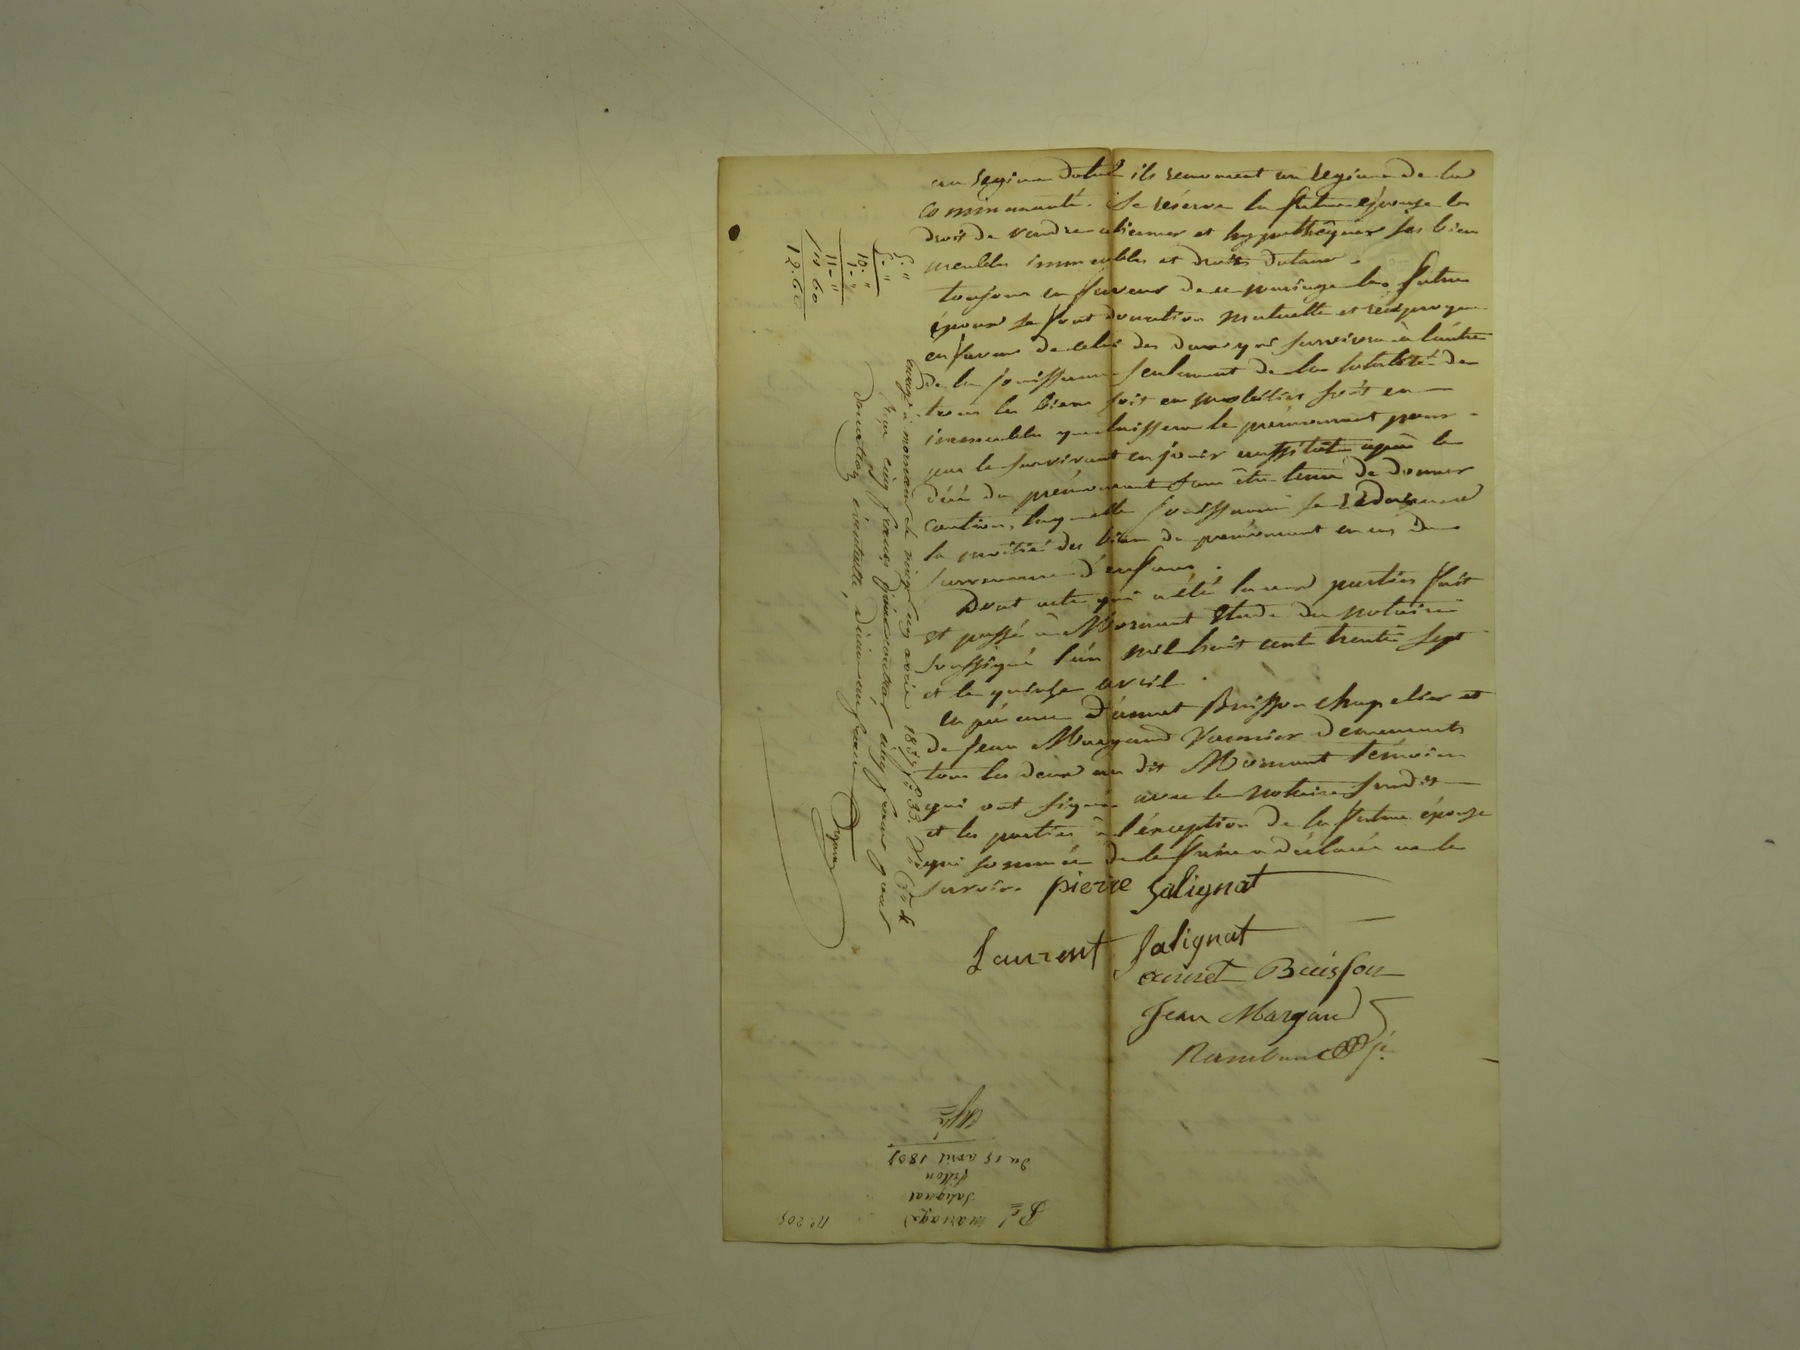 au regime dotal ils renoncent au regime de la
communauté. Se réserve la future épouse le
droit de vendre aliener et hypothéquer ses bien
meubles immeubles et droits dotaux.
toujours en faveur de ce mariage les futur
époux se font donation mutuelle et réciproque
en faveur de celui des deux qui survivra à l'autre
de la jouissance seulement de la totalité de
tous les biens soit en mobilier soit en
immeubles que laissera le prémourant pour
par le survivant en jouir aussitot après le
décé du prémourant sans être tenu de donner
caution, laquelle jouissance se réduira a
la moitié des biens du prémourant en cas de
survenance d'enfans.
Dont acte qui a été lu aux parties fait
et passé à Mornant Etude du notaire
soussigné l'an mil huit cent trente sept
et le quinze avril.
en présence d'annet Buisson chapelier et
de Jean Margand demeurants
tous les deux au dit Mornant temoins
qui ont signé avec le notaire susdit
et les parties à l'exception de la future épouse
qui sommée de le faire a déclaré ne le
savoir. pierre Salignat
Laurent Salignat
annet Buisson
Jean Margand
5. "
5. "
10. "
1. "
11. "
1. 60
12. 60
mornant le vingt cinq avril 1837 f° 33
cinq francs cinq francs pour
donation éventuelle, dixième
N° 205
mariage
Salignat
fillon
du 15 avril 1837